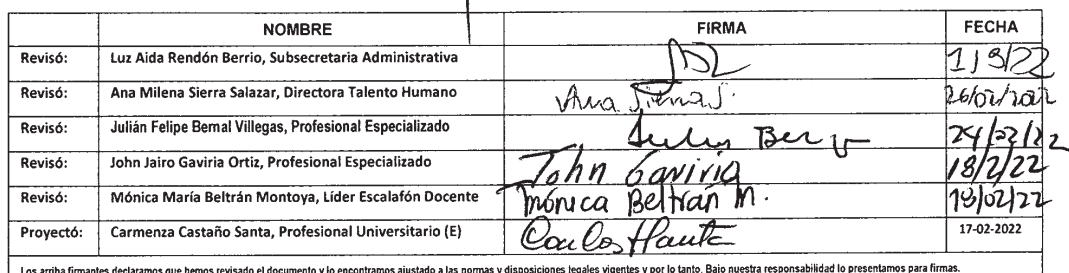 NOMBRE FIRMA FECHA
Revisó: Luz Aida Rendón Berrio, Subsecretaria Administrativa 1/3/22
Revisó: Ana Milena Sierra Salazar, Directora Talento Humano Ana Sierra S. 26/02/2022
Revisó: Julián Felipe Bernal Villegas, Profesional Especializado 24/02/22
Revisó: John Jairo Gaviria Ortiz, Profesional Especializado John Gaviria 18/2/22
Revisó: Mónica María Beltrán Montoya, Líder Escalafón Docente Mónica Beltrán M. 18/02/22
Proyectó: Carmenza Castaño Santa, Profesional Universitario (E) 17-02-2022
Los arriba firmantes declaramos que hemos revisado el documento y lo encontramos ajustado a las normas y disposiciones legales vigentes y por lo tanto. Bajo nuestra responsabilidad lo presentamos para firmas.